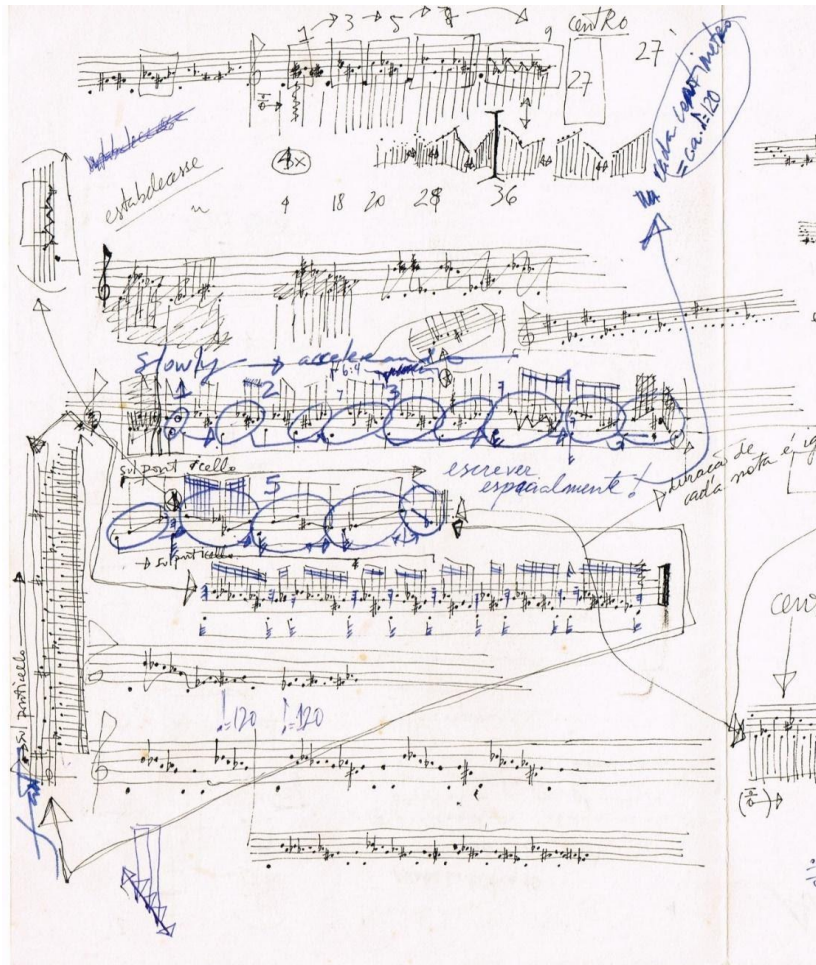 1 → 3 → 5 → 7 → 9 centro
27 27'
cada centimetro
= ca. ♪=120
estabelecesse
4x
4 18 20 28 36
slowly → accelerando
6:4
1 2 7 3 7 4
sul ponticello
escrever
espacialmente!
duração de
cada nota é ig
5
→ sul ponticello
sul ponticello
♩=120 ♩=120
fast
cen